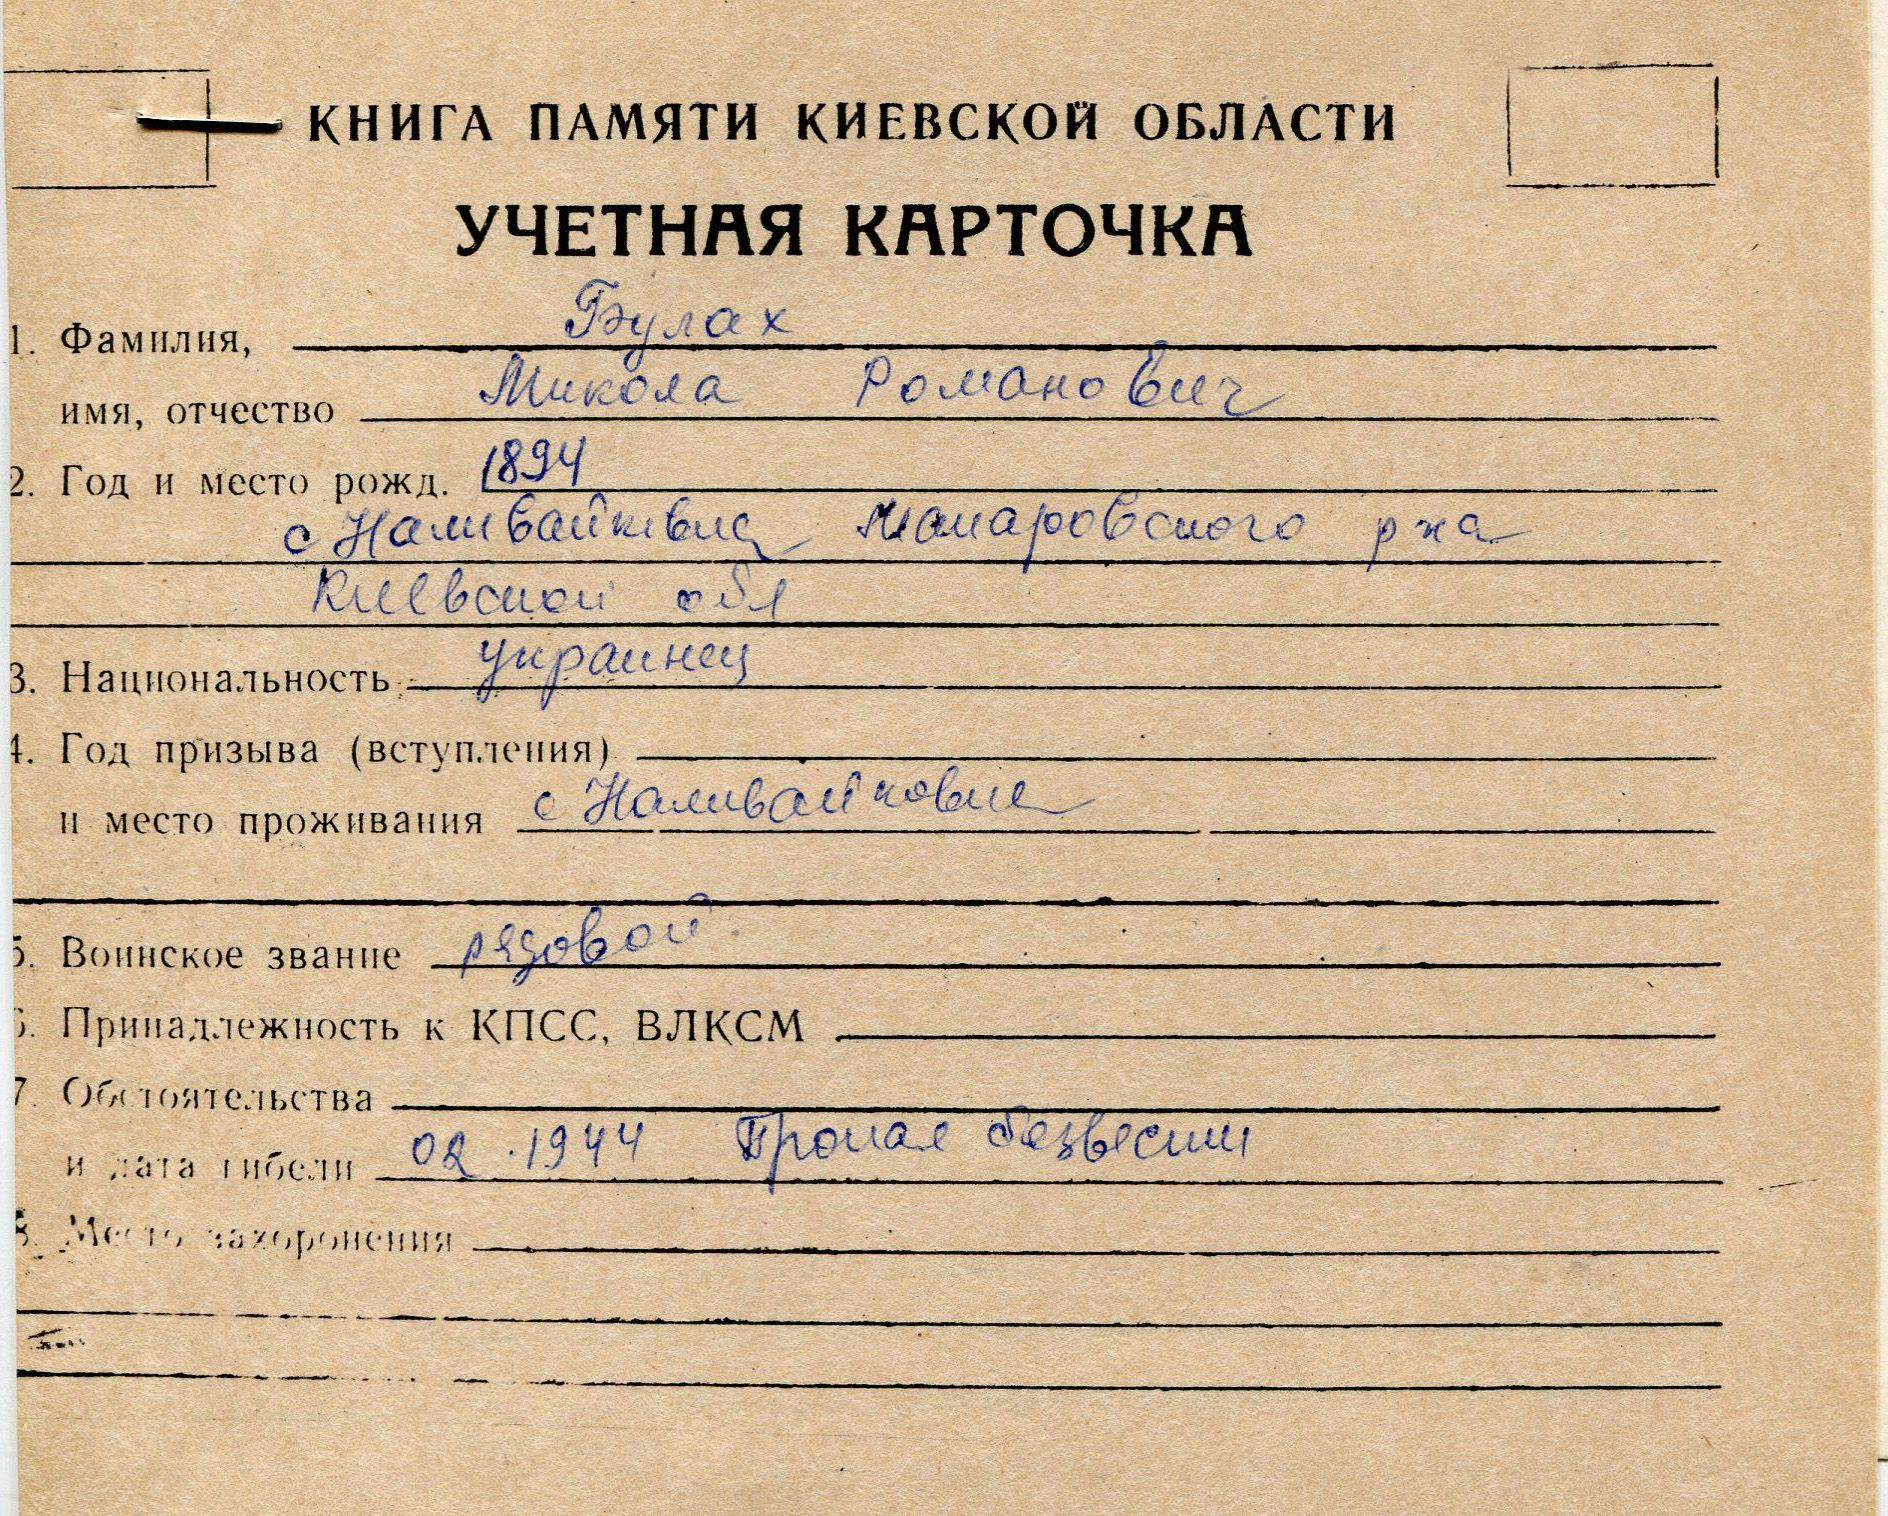 КНИГА ПАМЯТИ КИЕВСКОЙ ОБЛАСТИ
УЧЕТНАЯ КАРТОЧКА
1. Фамилия, Булах
имя, отчество Микола Романович
2. Год и место рожд. 1894
с Наливайкивка Макаровского р на
Киевской обл
3. Национальность украинец
4. Год призыва (вступления)
и место проживания с Наливайковке
5. Воинское звание рядовой
6. Принадлежность к КПСС, ВЛКСМ
7. Обстоятельства
и дата гибели 02.1944 Пропал безвести
8. Место захоронения